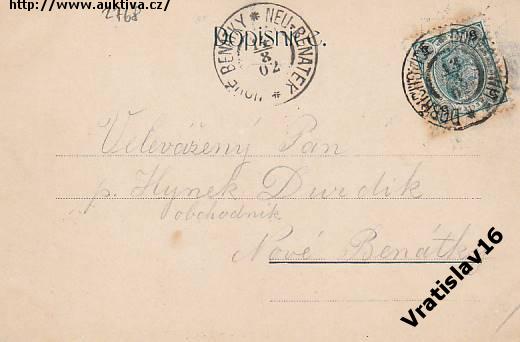 http://www.auktiva.cz/
2768
Dopisnice.
NOVÉ BENÁTKY * NEU-BENATEK *
8
02
Velevážený Pan
p. Hynek Durdik
obchodník
Nové Benátky
Vratislav16